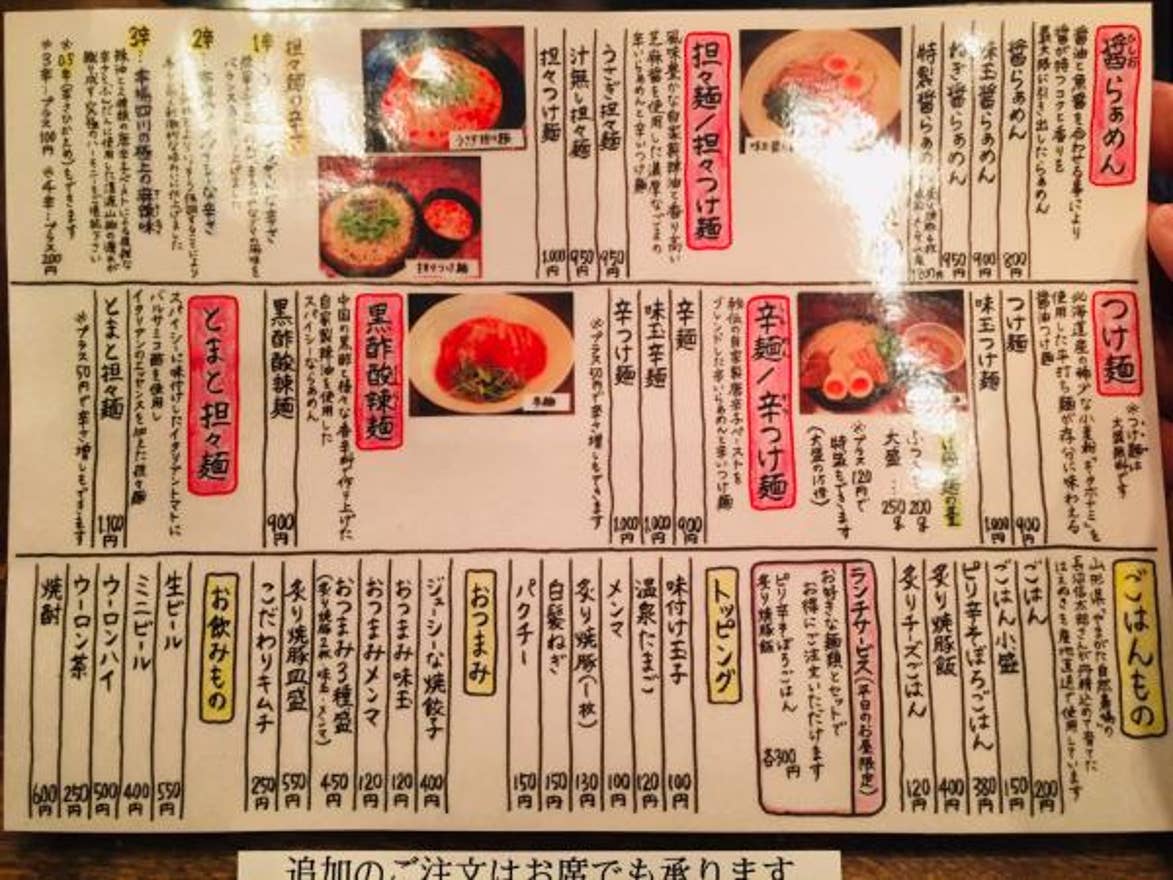 醤らぁめん
ひしお
醤油と魚醤を合わせる事により
醤が持つコクと香りを
最大限に引き出したらぁめん
醤らぁめん 800円
味玉醤らぁめん 900円
ねぎ醤らぁめん 950円
特製醤らぁめん
担々麺/担々つけ麺
風味豊かな自家製辣油と香り高い
芝麻醤を使用した濃厚なごまの
辛いらぁめんと辛いつけ麺
うさぎ担々麺 950円
汁無し担々麺 950円
担々つけ麺 1,000円
うさぎ担々麺
担々つけ麺
担々麺の辛さ
1辛
2辛
3辛…本場四川の極上の麻辣味
※0.5辛(辛さひかえめ)もできます
※3辛…プラス100円 ※4辛…プラス200円
つけ麺
※つけ麺は
大盛無料です
北海道産の稀少な小麦粉"キタホナミ"を
使用した平打ち麺が存分に味わえる
醤油つけ麺
つけ麺 900円
味玉つけ麺 1,000円
ふつう…200g
大盛…250g
※プラス120円で
特盛もできます
(大盛の1.5倍)
辛麺/辛つけ麺
秘伝の自家製唐辛子ペーストを
ブレンドした辛いらぁめんと辛いつけ麺
辛麺 900円
味玉辛麺 1,000円
辛つけ麺 1,000円
※プラス50円で辛さ増しもできます
辛麺
黒酢酸辣麺
中国の黒酢と様々な香辛料で作り上げた
自家製辣油を使用した
スパイシーならぁめん
黒酢酸辣麺 900円
とまと担々麺
スパイシーに味付けしたイタリアントマトに
バルサミコ酢を使用し
イタリアンのエッセンスを加えた担々麺
とまと担々麺 1,100円
※プラス50円で辛さ増しもできます
ごはんもの
山形県"やまがた自然農場"の
はえぬきを産地直送で使用しています
ごはん 200円
ごはん小盛 150円
ピリ辛そぼろごはん 380円
炙り焼豚飯 400円
炙りチーズごはん 120円
ランチサービス(平日のお昼限定)
お好きな麺類とセットで
お得にご注文いただけます
ピリ辛そぼろごはん
炙り焼豚飯
各300円
トッピング
味付け玉子 100円
温泉たまご 120円
メンマ 100円
炙り焼豚(一枚) 130円
白髪ねぎ 150円
パクチー 150円
おつまみ
ジューシーな焼餃子 400円
おつまみ味玉 120円
おつまみメンマ 120円
おつまみ3種盛 450円
(炙り焼豚2枚・味玉・メンマ)
炙り焼豚皿盛 550円
こだわりキムチ 250円
お飲みもの
生ビール 550円
ミニビール 400円
ウーロンハイ 500円
ウーロン茶 250円
焼酎 600円
追加のご注文はお席でも承ります